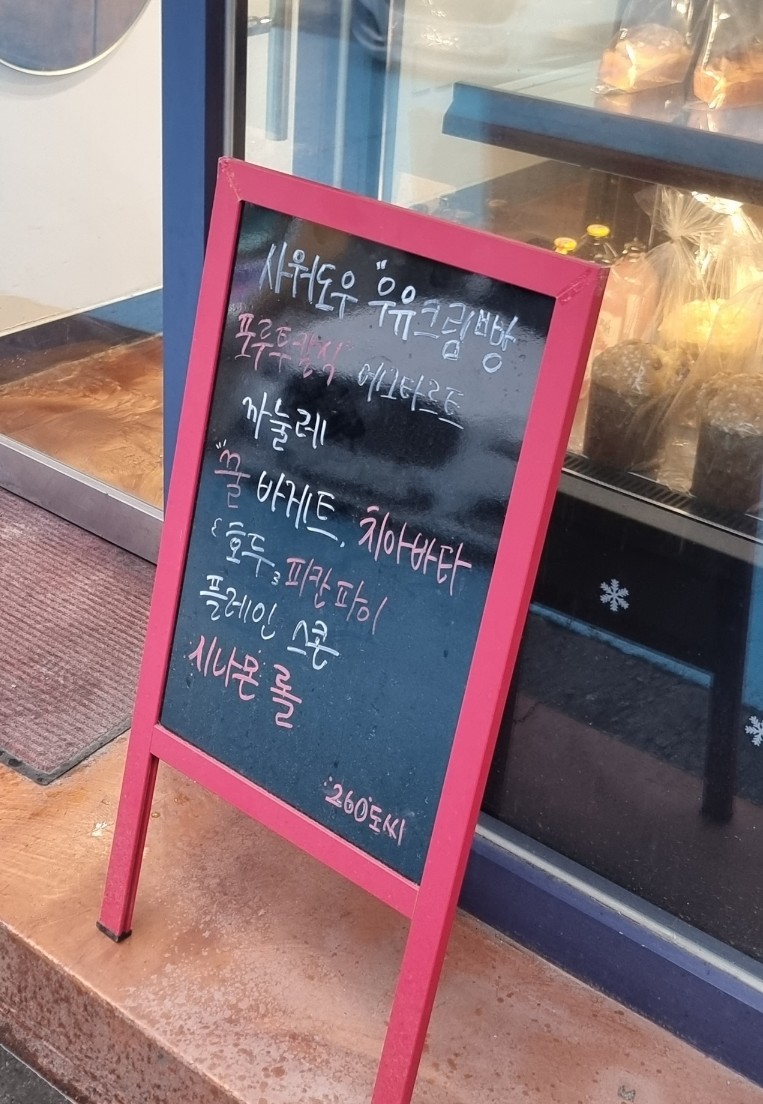 사워도우 "우유크림빵
푸루투칼식 에그타르트
까눌레
"꿀 바게트, 치아바타
호두, 피칸파이
플레인 스콘
시나몬 롤
260도씨